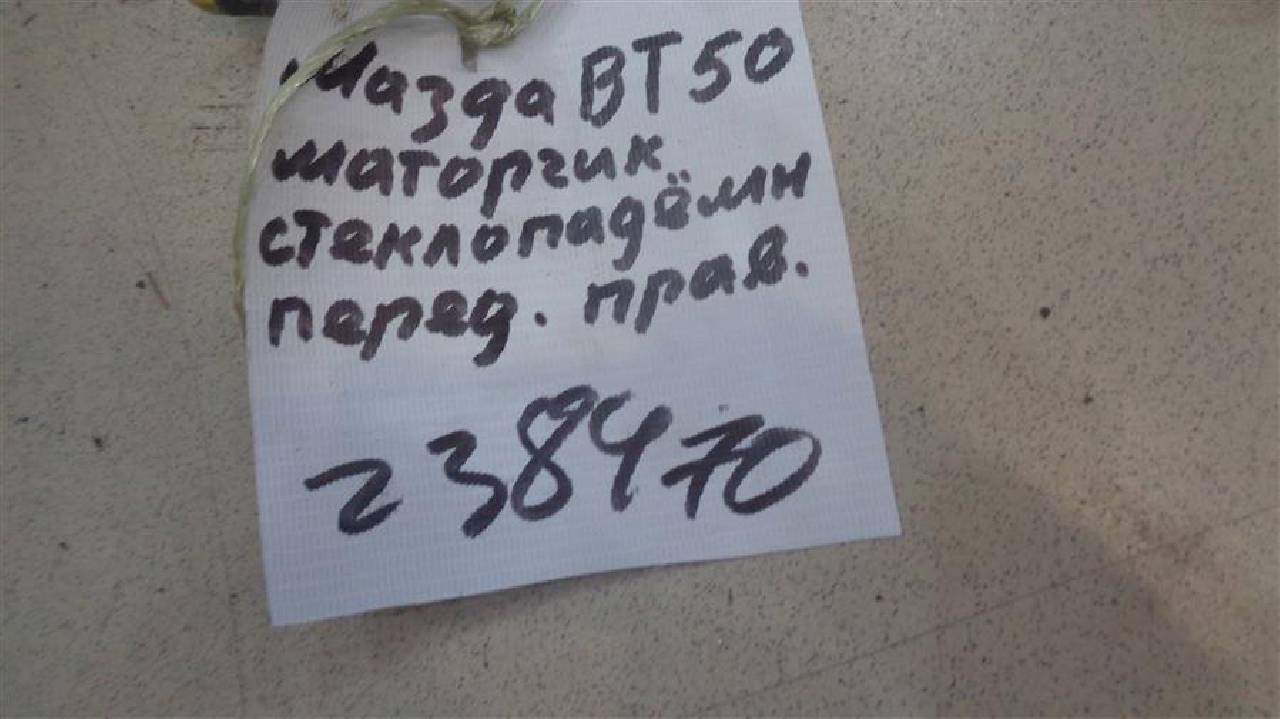 Мазда ВТ50
маторчик
стеклопадёмн
перед. прав.
238470